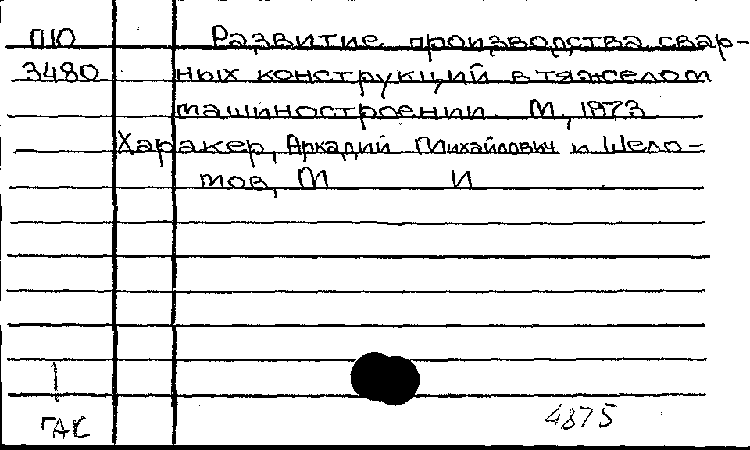 ПЮ Развитие производства свар-
3480 ных конструкций в тяжелом
машиностроении. М., 1973
Харакер, Аркадий Михайлович и Шело-
тов, М И
ГАС 4875